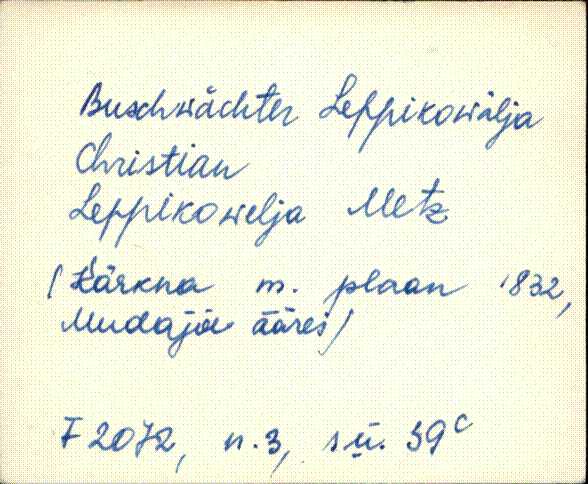 Buschwächter Leppikowälja
Christian
Leppikowelja Metz
/Kärkna m. plaan 1832,
Mudajõe ääres/
F 2072, n.3, sü. 39c